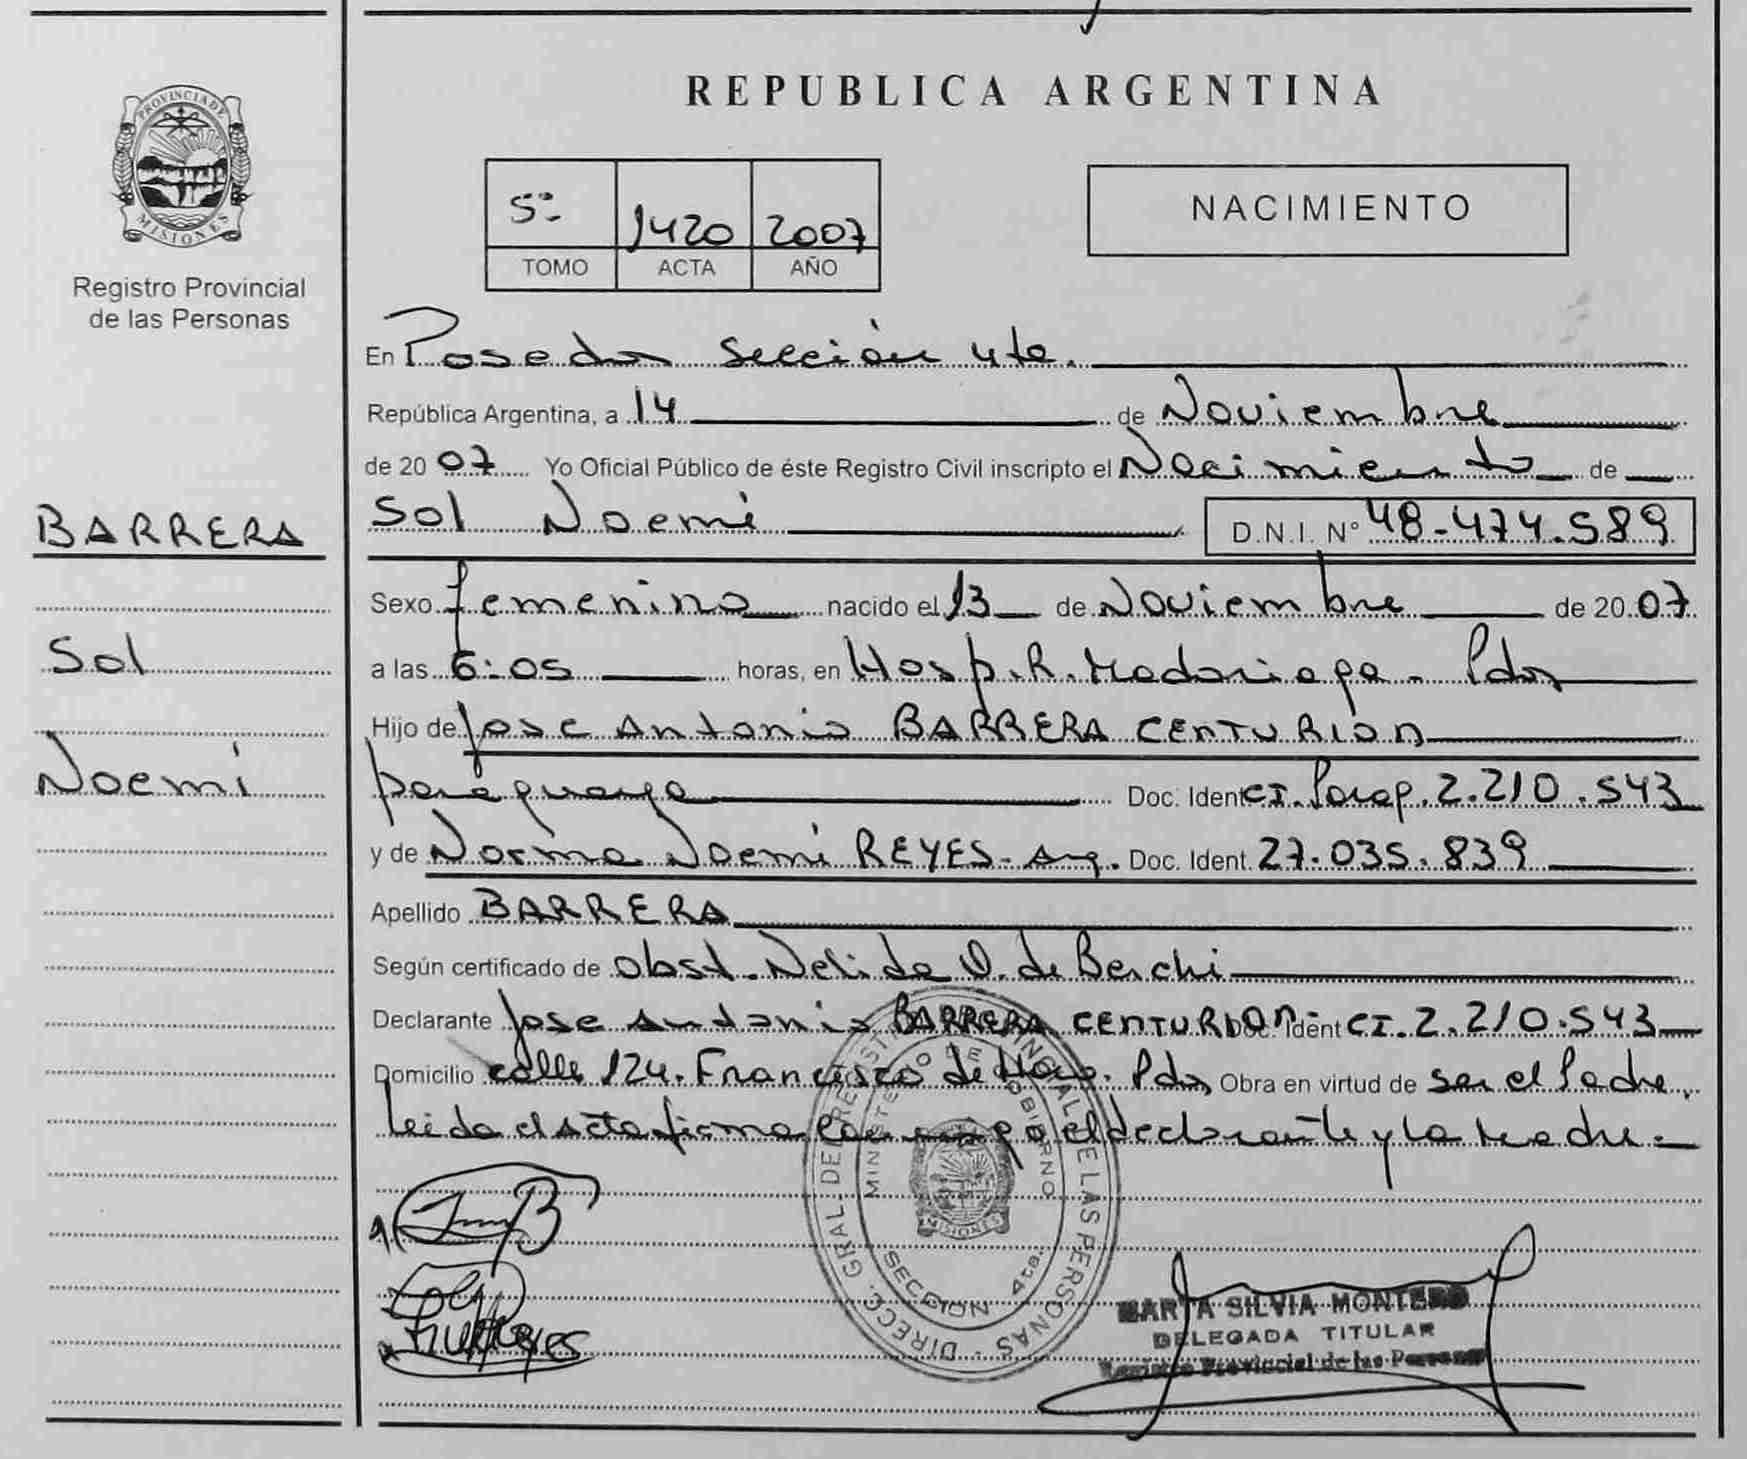 REPUBLICA ARGENTINA
PROVINCIA DE
MISIONES
Registro Provincial
de las Personas
5º 1420 2007
TOMO ACTA AÑO
NACIMIENTO
BARRERA
Sol
Noemi
En Posadas Sección 4ta.
República Argentina, a 14 de Noviembre
de 2007 Yo Oficial Público de éste Registro Civil inscripto el Nacimiento de
Sol Noemi D.N.I. Nº 48-474.589
Sexo femenino nacido el 13 de Noviembre de 2007
a las 6:05 horas, en Hosp. R. Madariaga - Pdas
Hijo de Jose Antonio BARRERA CENTURION
paraguaya Doc. Ident CI. Parag. 2.210.543
y de Norma Noemi REYES - Arg. Doc. Ident. 27.035.839
Apellido BARRERA
Según certificado de Obst. Nelida O. de Berchi
Declarante Jose Antonio BARRERA CENTURION Doc. Ident CI. 2.210.543
Domicilio calle 124. Francisco de Haro. Pdas Obra en virtud de ser el Padre,
leida el acta firma el declarante y la Madre -
DIRECC. GRAL. DE REGISTRO PROVINCIAL DE LAS PERSONAS
MINISTERIO DE GOBIERNO
MISIONES
SECCION 4ta.
MARTA SILVIA MONTERO
DELEGADA TITULAR
Registro Provincial de las Personas